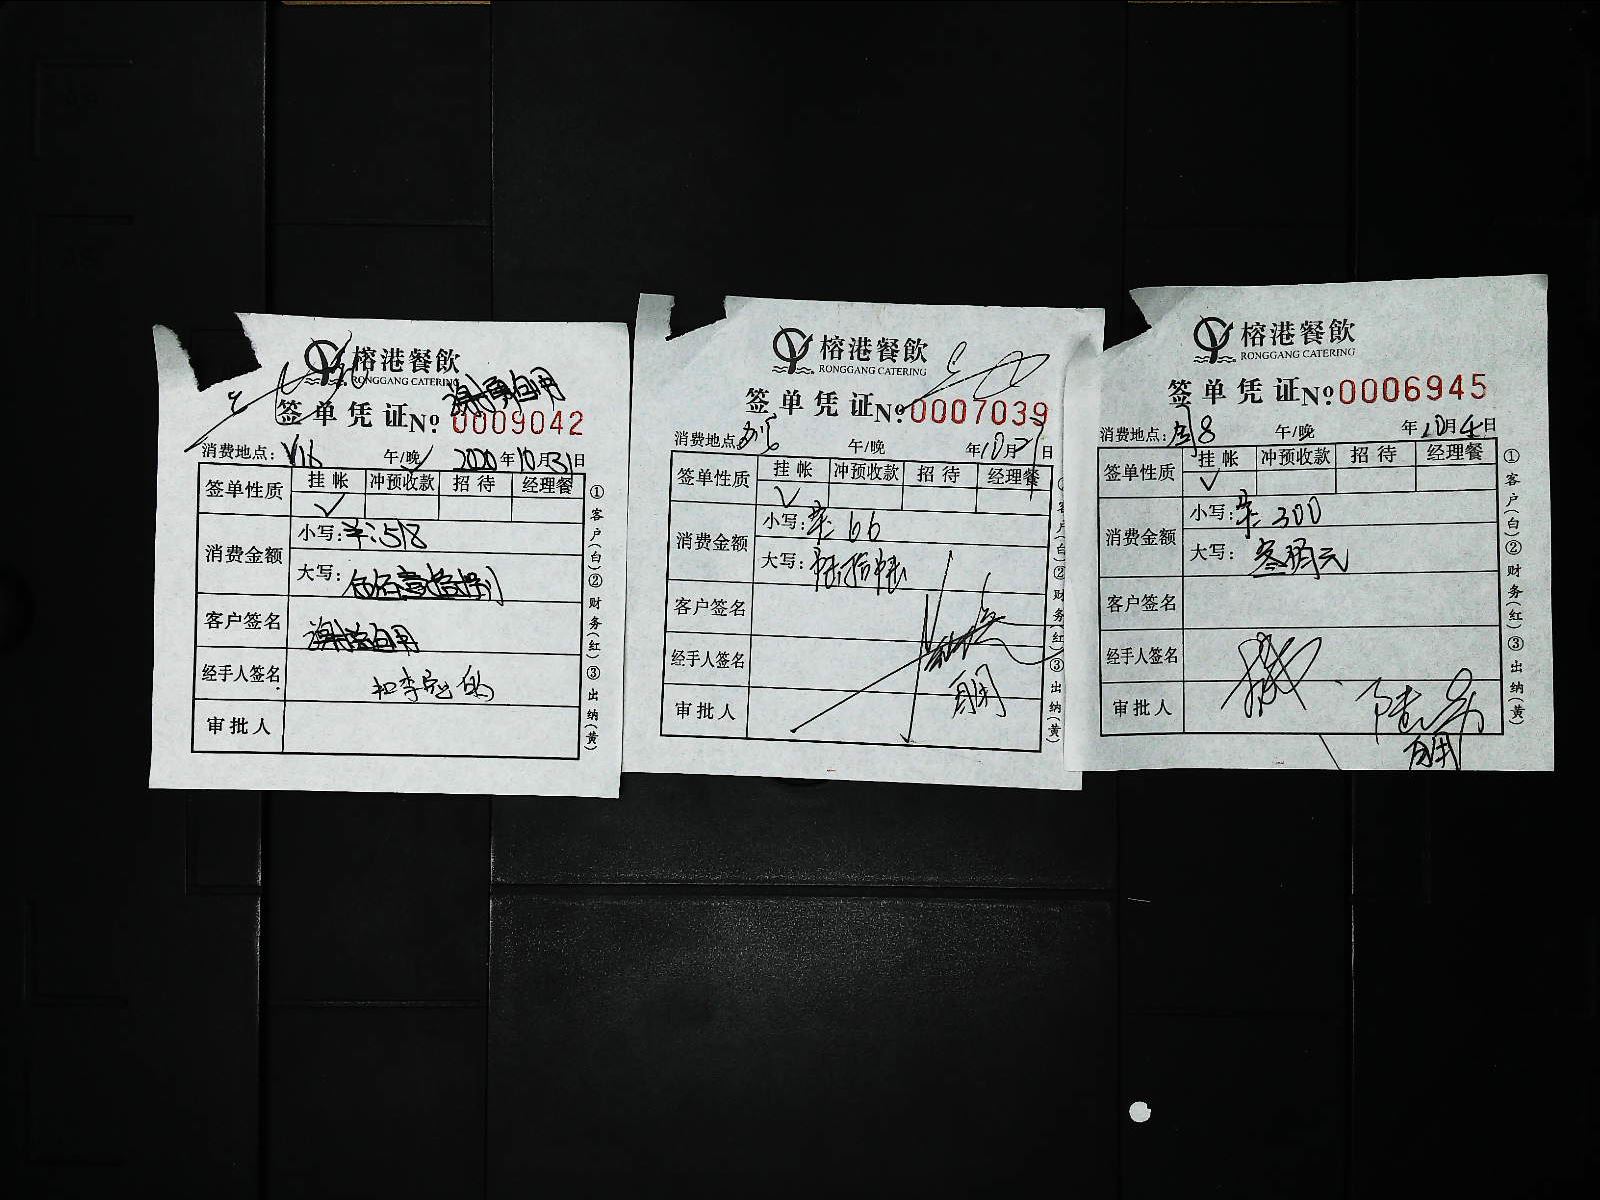 榕港餐飲
RONGGANG CATERING
签单凭证 №0009042
消费地点: V16 午/晚 2020年10月31日
签单性质 挂帐 冲预收款 招待 经理餐
✓
消费金额 小写: 518
大写: 伍佰壹拾捌
客户签名
经手人签名
审批人
①客户(白)②财务(红)③出纳(黄)
榕港餐飲
RONGGANG CATERING
签单凭证 №0007039
消费地点: 午/晚 年10月 日
签单性质 挂帐 冲预收款 招待 经理餐
✓
消费金额 小写: 菜: 66
大写: 陆拾陆
客户签名
经手人签名
审批人
客户(白)②财务(红)③出纳(黄)
榕港餐飲
RONGGANG CATERING
签单凭证 №0006945
消费地点: 8 午/晚 年10月4日
签单性质 挂帐 冲预收款 招待 经理餐
✓
消费金额 小写: 菜: 300
大写: 叁佰元
客户签名
经手人签名
审批人
①客户(白)②财务(红)③出纳(黄)